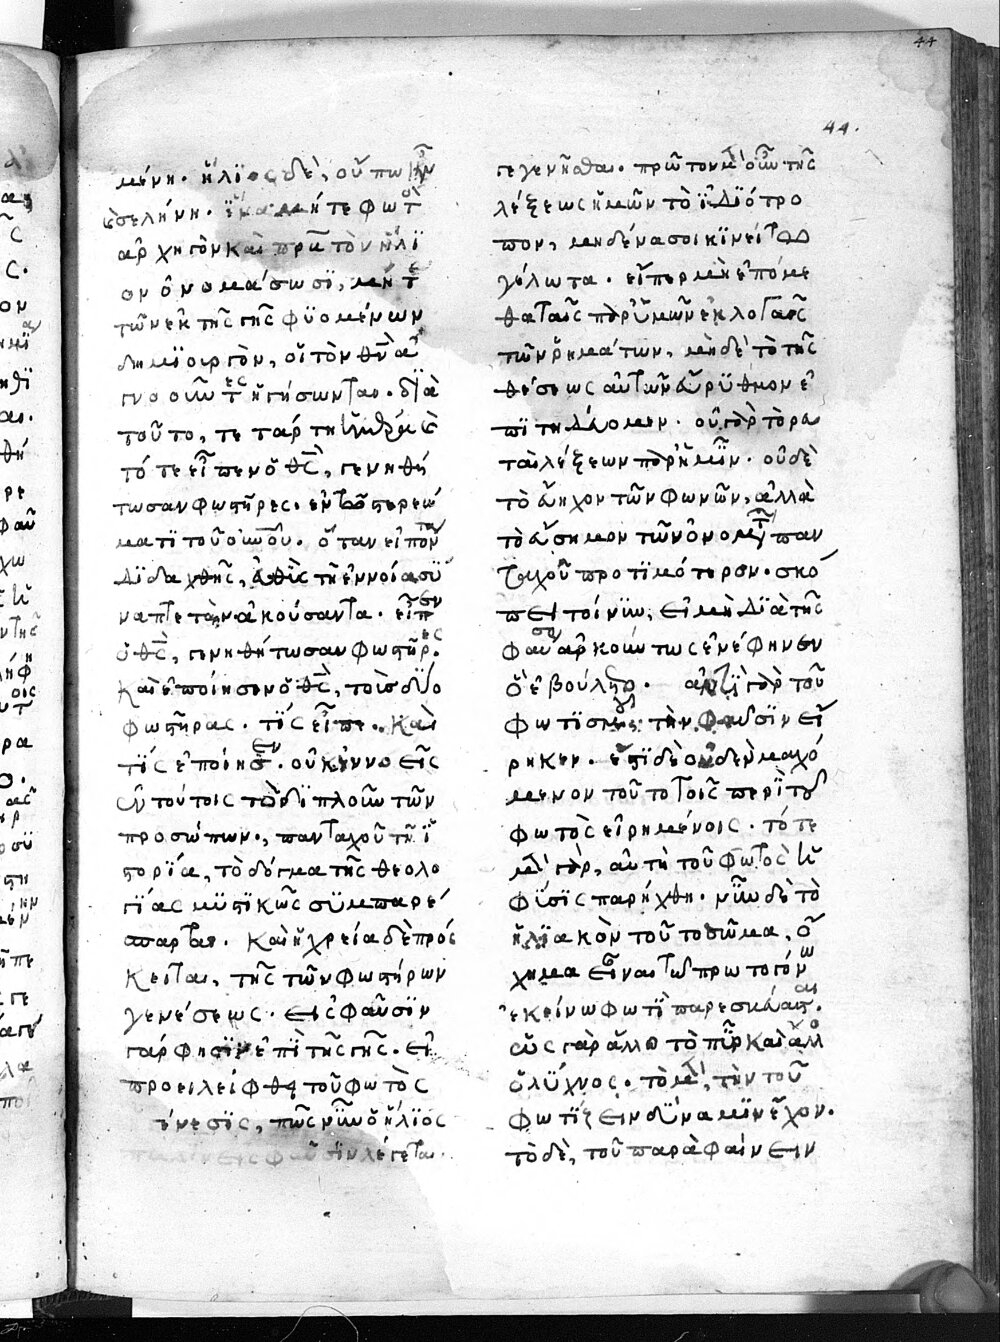 44
44.
μένη. ἥλϊος δὲ, οὔπω ἦν
σελήνη. ἵνα μήτε φωτὸς
ἀρχηγὸν καὶ πρῶτον ἥλϊ
ον ὀνομάσωσϊ, μήτε
τῶν ἐκ τῆς γῆς φϋομένων
δημϊουργὸν, οἱ τὸν θν̅ ἀ
γνοοῦντες ἡγήσωνται. δϊὰ
τοῦτο, τετάρτη
τότε εἶπεν ὁ θς̅, γενηθή
τωσαν φωστῆρες. ἐν τῶ στερεώ
ματϊ τοῦ οὐνοῦ. ὅταν εἰπόντα
δϊδαχθῆς, εὐθὺς τῆ ἐννοία σύ
ναπτε τὸν ἀκούσαντα. εἶπεν
ὁ θς̅, γενηθήτωσαν φωστῆρες.
καὶ ἐποίησεν ὁ θς̅, τοὺς δύο
φωστῆρας. τίς εἶπε. καὶ
τίς ἐποίησεν. οὐκ ἐννοεῖς
ἐν τούτοις τὸ δϊπλοῦν τῶν
προσώπων. πανταχοῦ τῆ ἱ
στορία, τὸ δόγμα τῆς θεολο
γίας μϋστικῶς σϋμπαρέ
σπαρται. καὶ ἡ χρεία δὲ πρόσ
κειται, τῆς τῶν φωστήρων
γενέσεως. εἰς φαῦσϊν
γάρ φησϊν ἐπὶ τῆς γῆς. εἰ
προειλείφθη τοῦ φωτὸς
ένεσϊς, πῶς νῦν ὁ ἥλϊος
πάλϊν εἰς φαῦσϊν λέγεται
γεγενῆσθαι. πρῶτον μὲν οὖν τῆς
λέξεως ἡμῶν τὸ ἰδϊότρο
πον, μηδένα σοι κϊνείτω
γέλωτα. εἴπερ μὴ ἑπόμε
θα ταῖς παρ' ὑμῶν ἐκλογαῖς
τῶν ῥημάτων, μηδὲ τὸ τῆς
θέσεως αὐτῶν εὔρϋθμον ἐ
πϊτηδεύομεν. οὐ γὰρ τορευ
ταὶ λέξεων παρ' ἡμῖν. οὐδὲ
τὸ εὔηχον τῶν φωνῶν, ἀλλὰ
τὸ εὔσημον τῶν ὀνομάτων παν
ταχοῦ προτϊμότερον. σκό
πει τοίνυν, εἰ μὴ δϊὰ τῆς
φαύσεως ἀρκούντως ἐνέφηνεν
ὃ ἐβούλετο. ἀντὶ γὰρ τοῦ
φωτϊσμοῦ, τὴν φαῦσϊν εἴ
ρηκεν. ἔστϊ δὲ οὐδὲν μαχό
μενον τοῦτο τοῖς περὶ τοῦ
φωτὸς εἰρημένοις. τότε
μὲν γὰρ, αὐτὴ τοῦ φωτὸς ἡ
φύσϊς παρήχθη. νῦν δὲ τὸ
ἡλϊακὸν τοῦτο σῶμα, ὄ
χημα εἶναι τῶ πρωτογόνω
ἐκείνω φωτὶ παρεσκεύασται.
ὡς γὰρ ἄλλο τὸ πῦρ καὶ ἄλλο
ὁ λύχνος. τὸ μὲν, τὴν τοῦ
φωτίζειν δύναμϊν ἔχον.
τὸ δὲ, τοῦ παραφαίνειν